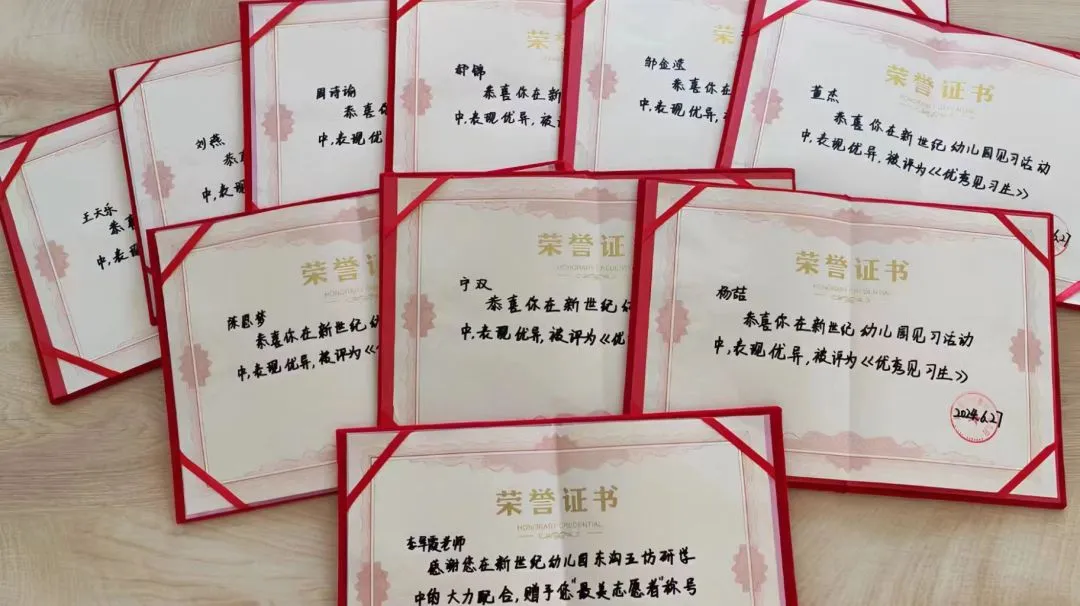 王天乐
中,表现
刘燕
中,表现
周诗谕
恭喜你
中,表现优
荣
舒锦
恭喜你在新
中,表现优异,
荣
邹金滢
恭喜你在
中,表现优异,被
荣誉证书
董杰
恭喜你在新世纪幼儿园见习活动
中,表现优异,被评为<<优秀见习生>>
6.27
荣誉证
陈恩梦
恭喜你在新世纪
中,表现优异,被评为
荣誉证
HONORARY CREDENTI
宁双
恭喜你在新世纪幼
中,表现优异,被评为<<优
荣誉证书
HONORARY CREDENTIAL
杨喆
恭喜你在新世纪幼儿园见习活动
中,表现优异,被评为<<优秀见习生>>
2024.6.27
荣誉证书
HONORARY CREDENTIAL
李早霞老师
感谢您在新世纪幼儿园东沟豆坊研学
中的大力配合,赠予您"最美志愿者"称号